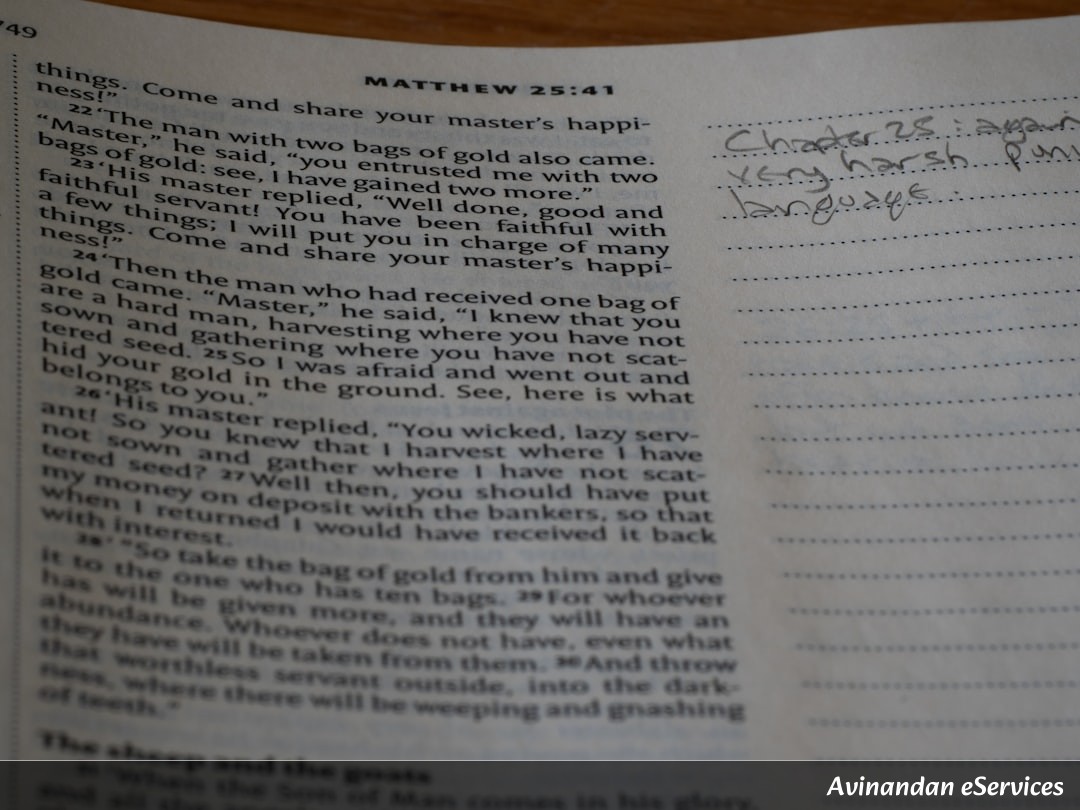 749
MATTHEW 25:41
things. Come and share your master's happi-
ness!"
22 'The man with two bags of gold also came.
"Master," he said, "you entrusted me with two
bags of gold: see, I have gained two more."
23 'His master replied, "Well done, good and
faithful servant! You have been faithful with
a few things; I will put you in charge of many
things. Come and share your master's happi-
ness!"
24 'Then the man who had received one bag of
gold came. "Master," he said, "I knew that you
are a hard man, harvesting where you have not
sown and gathering where you have not scat-
tered seed. 25 So I was afraid and went out and
hid your gold in the ground. See, here is what
belongs to you."
26 'His master replied, "You wicked, lazy serv-
ant! So you knew that I harvest where I have
not sown and gather where I have not scat-
tered seed? 27 Well then, you should have put
my money on deposit with the bankers, so that
when I returned I would have received it back
with interest.
28 ' "So take the bag of gold from him and give
it to the one who has ten bags. 29 For whoever
has will be given more, and they will have an
abundance. Whoever does not have, even what
they have will be taken from them. 30 And throw
that worthless servant outside, into the dark-
ness, where there will be weeping and gnashing
of teeth."
The sheep and the goats
"When the Son of Man comes in his glory,
Chapter 25: again
very harsh puni
language.
Avinandan eServices